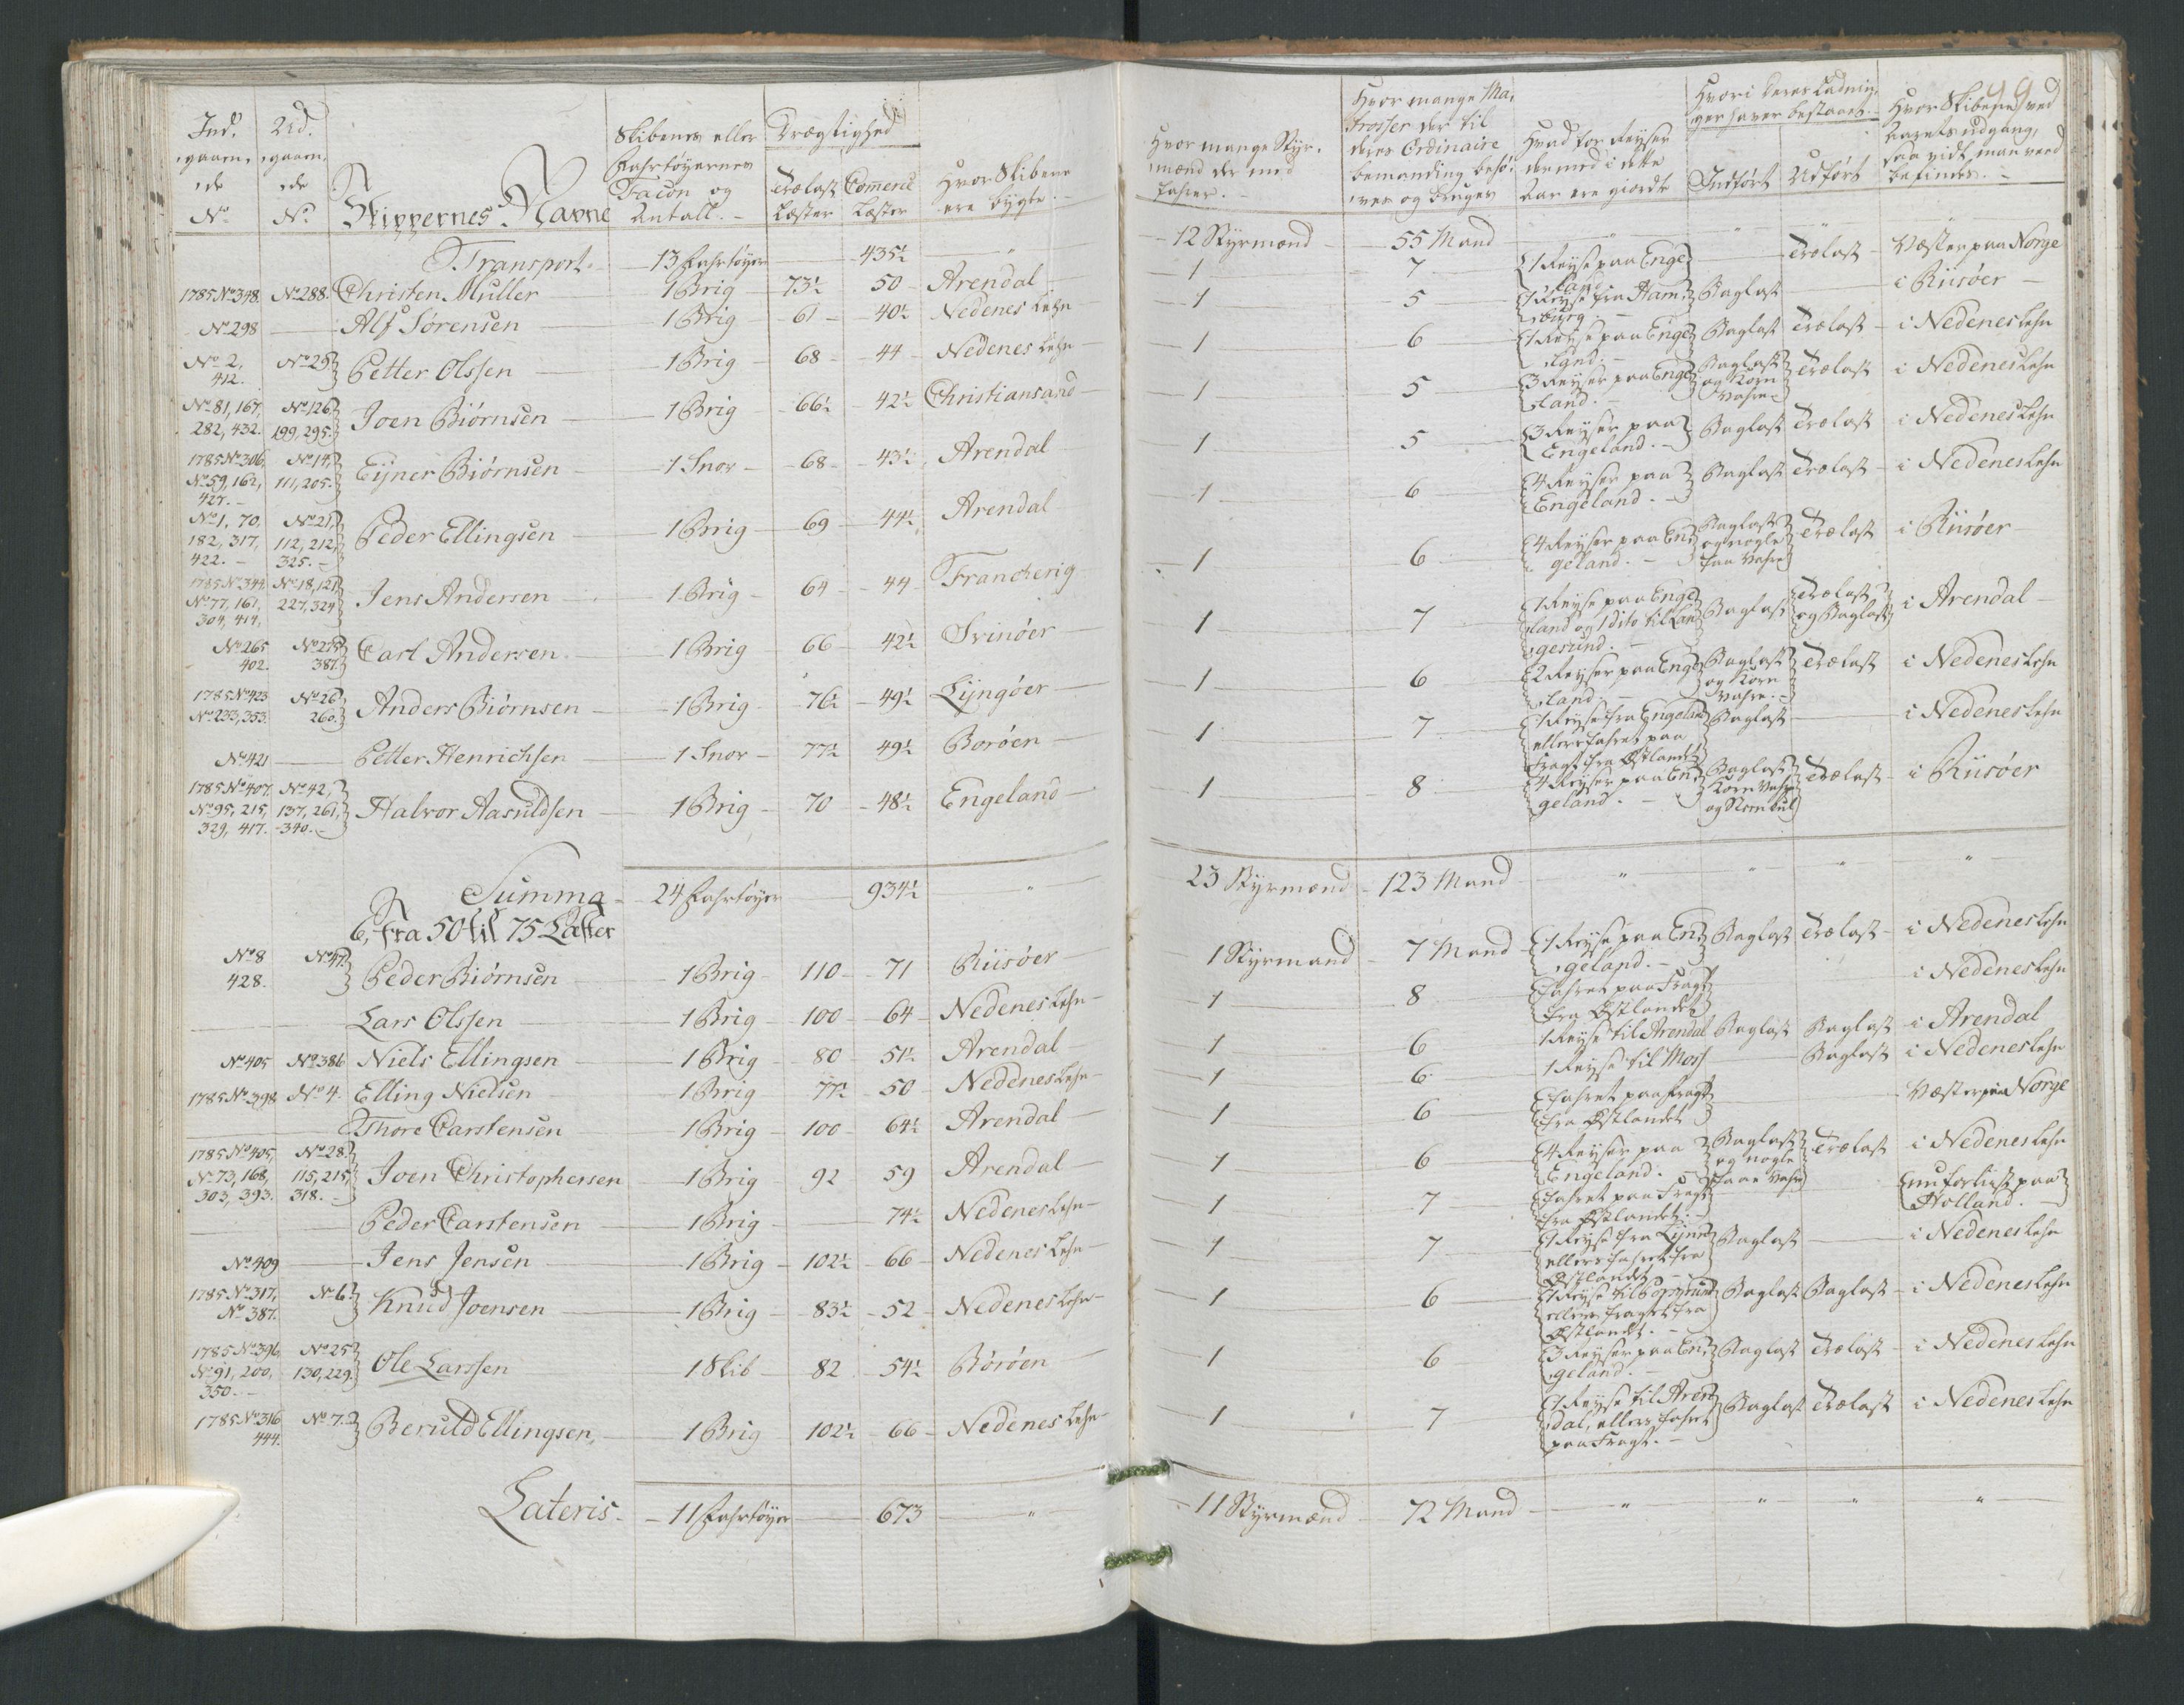 99
Ind, gaaende No
Ud, gaaende No
Skippernes Navne
Skibenes eller Fahrtøyernes Facon og Antall. -
Drægtighed
Trælast Læster
Commerce Læster
Hvor Skibene ere bygte. -
Hvor mange Styrmænd der med farer. -
Hvor mange Matrosser der til deres Ordinaire bemanding behøves og bruges
Hvad for Reyser dermed i dette Aar ere giordte
Hvori deres Ladninger haver bestaaet. -
Indført
Udført
Hvor Skibene ved Aarets udgang, saa vidt man veed befindes. -
Transport. - 13 Fahrtøyer - 435½ - 12 Styrmænd - 55 Mand
1785 No 348. No 288. Christen Muller - 1 Brig - 73½ 50 - Arendal - 1 - 7 - 1 Reyse paa Engeland - Trælast - Væster paa Norge
No 298 - Alf Sørensen - 1 Brig - 61 - 40½ Nedenes Lehn - 1 - 5 - 1 Reyse fra Hamburg. - Baglast - i Riisøer -
No 2, 412. No 25 Petter Olssen - 1 Brig - 68 - 44 - Nedenes Lehn - 1 - 6 - 1 Reyse paa Engeland. - Baglast Trælast - i Nedenes Lehn
No 81, 167, 282, 432. No 126 199, 295. Joen Biørnsen - 1 Brig - 66½ 42½ Christiansand - 1 - 5 - 3 Reyser paa Engeland. - Baglast og Korn Vahre Trælast i Nedenes Lehn
1785 No 306, No 59, 162, 427. - No 14, 111, 205. Eyner Biørnsen - 1 Snor - 68 - 43½ Arendal - 1 - 5 - 3 Reyser paa Engeland. - Baglast Trælast i Nedenes Lehn
No 1, 70, 182, 317, 422. - No 21, 112, 212, 325. - Peder Ellingsen - 1 Brig - 69 - 44½ Arendal - 1 - 6 - 4 Reyser paa Engeland. - Baglast Trælast - i Nedenes Lehn
1785 No 344. No 77, 161, 304, 414, No 18, 121, 227, 324 Jens Andersen - 1 Brig - 64 - 44 - Francherig - 1 - 6 - 4 Reyser paa Engeland. - Baglast og nogle faa Vahre Trælast i Riisøer -
No 265 402. No 275 387. Carl Andersen - 1 Brig - 66 - 42½ Svinöer - 1 - 7 - 1 Reyse paa Engeland og 1 dito til Langesund. - Baglast Trælast og Baglast i Arendal -
1785 No 423 No 233, 353. No 26 260. Anders Biørnsen - 1 Brig - 76½ - 49½ Lyngöer - 1 - 6 - 2 Reyser paa Engeland. - Baglast og Korn Vahre. - Trælast i Nedenes Lehn
No 421 - Petter Henrichsen - 1 Snor - 77½ 49½ Boröen - 1 - 7 - 1 Reyse fra Engeland ellers fahret paa Fragt fra Østlandet Baglast - i Nedenes Lehn
1785 No 407, No 95, 215, 329, 417. No 42, 137, 261, 340. - Halvor Aasuldsen - 1 Brig - 70 - 48½ Engeland - 1 - 8 - 4 Reyser paa Engeland. - Baglast Korn Vahre Trælast - i Riisøer
Summa - 24 Fahrtøyer - 934½ - 23 Styrmænd - 123 Mand
6, Fra 50 til 75 Læster
No 8 428. No 47 Peder Biørnsen - 1 Brig - 110 - 71 Riisøer - 1 Styrmand - 7 Mand - 1 Reyse paa Engeland. - Baglast Trælast - i Nedenes Lehn
Lars Olssen - 1 Brig - 100 - 64 - Nedenes Lehn - 1 - 8 - Fahret paa Fragt fra Østlandet - i Nedenes Lehn
No 405 No 386 Niels Ellingsen - 1 Brig - 80 - 51½ Arendal - 1 - 6 - 1 Reyse til Arendal Baglast Baglast i Arendal
1785 No 398. No 4. Elling Nielsen - 1 Brig 77½ - 50 - Nedenes Lehn - 1 - 6 - 1 Reyse til Moss - Baglast i Nedenes Lehn
Thore Carstensen - 1 Brig - 100 - 64½ Arendal - 1 - 6 - Fahret paa Fragt fra Østlandet - Væster paa Norge
1785 No 405, No 73, 168, 303, 393. No 28. 115, 215, 318. - Joen Christophersen - 1 Brig - 92 - 59 Arendal - 1 - 6 - 4 Reyser paa Engeland. Baglast og nogle faae Vahre Trælast i Nedenes Lehn
Peder Carstensen - 1 Brig - 74½ Nedenes Lehn - 1 - 7 - Fahret paa Fragt fra Østlandet. - nu forliist paa Holland.
No 409 - Jens Jensen - 1 Brig - 102½ - 66 - Nedenes Lehn - 1 - 7 - 1 Reyse fra ellers fahret fra Østlandet - Baglast - i Nedenes Lehn
1785 No 317, No 387. No 6. Knud Joensen - 1 Brig - 83½ - 52 - Nedenes Lehn - 1 - 6 - 1 Reyse til ellers fragtet fra Østlandet. - Baglast Baglast - i Nedenes Lehn
1785 No 396, No 91, 200, 350. - No 25 130, 229. Ole Larssen - 1 Skib - 82 - 54½ Böröen - 1 - 6 - 3 Reyser paa Engeland. - Baglast Trælast - i Nedenes Lehn
1785 No 316 444. No 7. Beruld Ellingsen - 1 Brig 102½ - 66 - Nedenes Lehn - 1 - 7 - 1 Reyse til Arendal, ellers fahret paa Fragt. - Baglast Trælast i Nedenes Lehn
Lateris. - 11 Fahrtøyer - 673 - 11 Styrmænd - 72 Mand